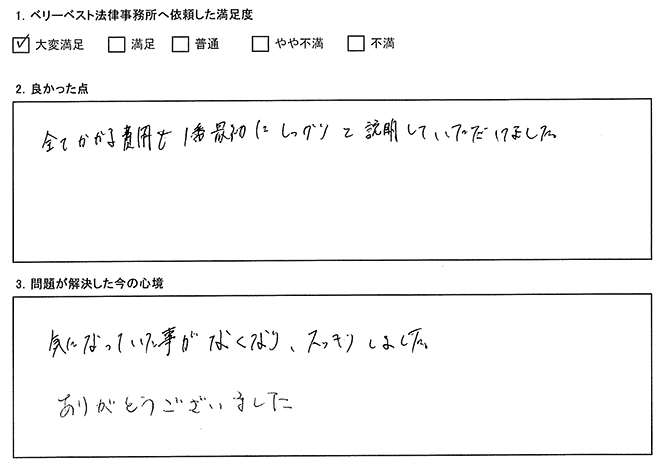 1. ベリーベスト法律事務所へ依頼した満足度
☑ 大変満足 □ 満足 □ 普通 □ やや不満 □ 不満
2. 良かった点
全てかかる費用を1番最初にしっかりと説明していただけました。
3. 問題が解決した今の心境
気になっていた事がなくなり、スッキリしました。
ありがとうございました